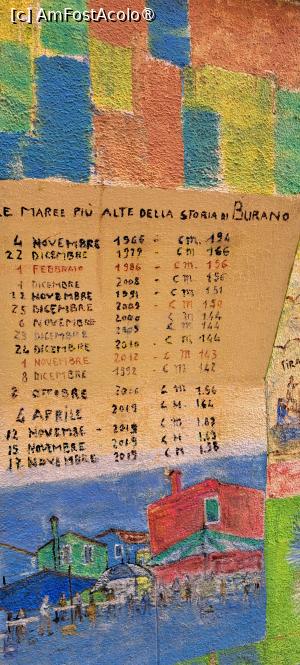 [c] AmFostAcolo®
LE MAREE PIÙ ALTE DELLA STORIA DI BURANO
4 NOVEMBRE 1966 - CM. 194
22 DICEMBRE 1979 - CM 166
1 FEBBRAIO 1986 - CM. 156
1 DICEMBRE 2008 - CM. 156
NOVEMBRE 1991 - CM. 151
25 DICEMBRE 2009 CM. 150
6 NOVEMBRE CM 144
23 DICEMBRE 2009 CM 144
24 DICEMBRE 2010 - CM. 144
1 NOVEMBRE 2012 - CM 143
8 DICEMBRE 1992 - CM 142
OTTOBRE CM 1.56
4 APRILE 2019 CM. 164
12 NOVEMBE - 2019 CM
15 NOVEMBRE - 2019 CM
17 NOVEMBRE 2019 CM